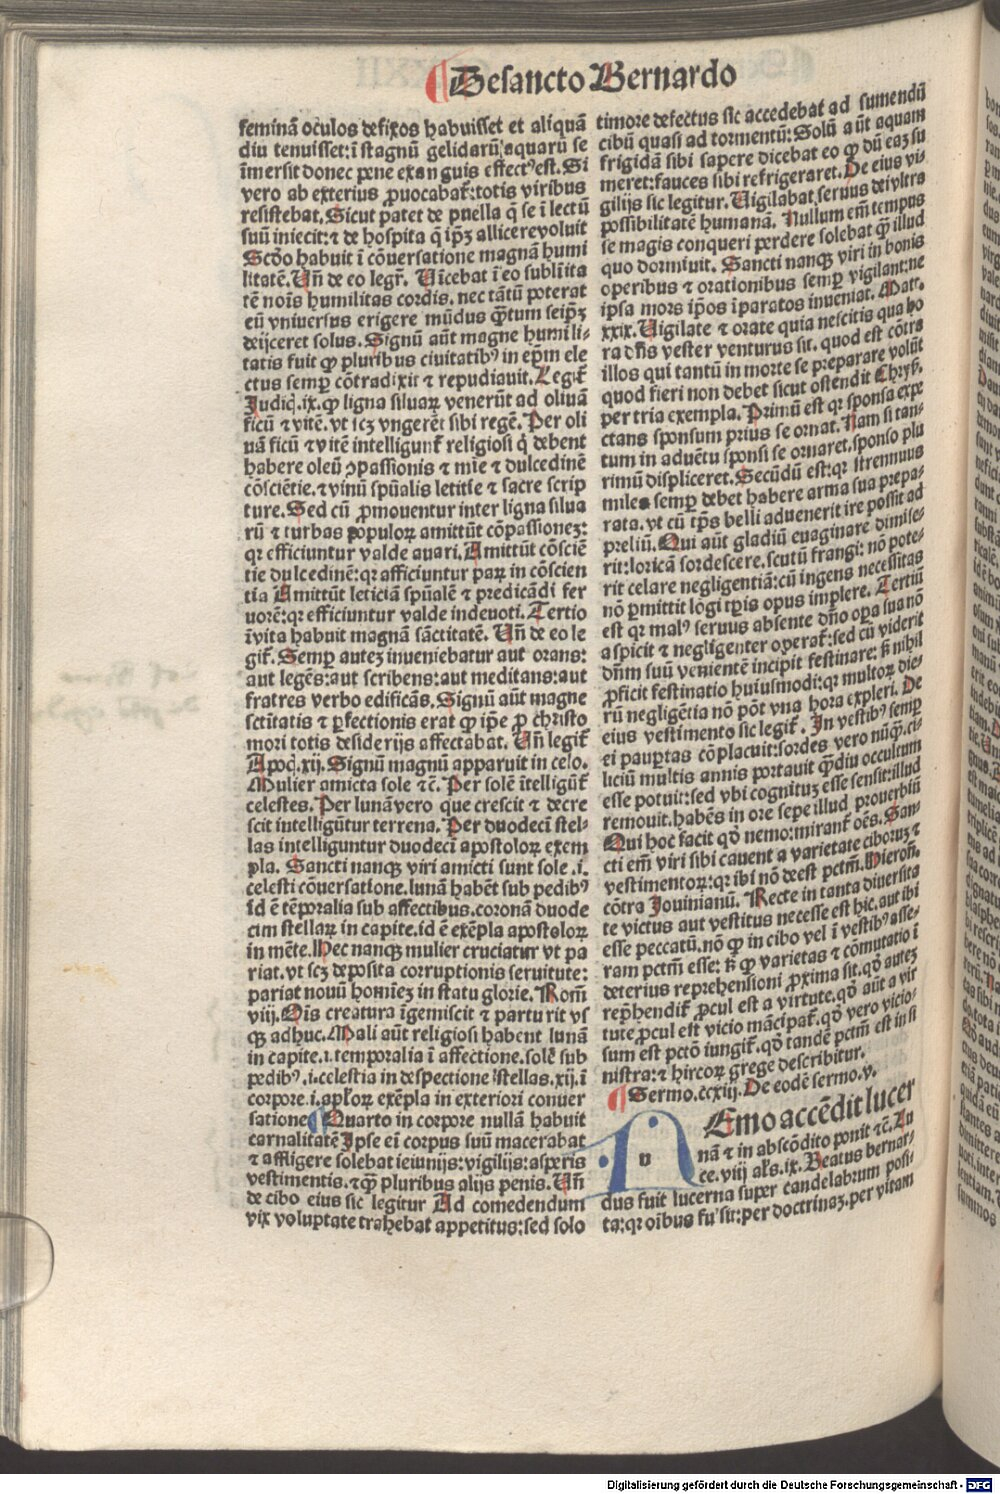 ¶ De sancto Bernardo
feminā oculos defixos habuisset et aliquā
diu tenuisset: ī stagnū gelidarū aquarū se
īmersit donec pene exanguis effectꝰ est. Si
vero ab exterius ꝓuocabat᷑: totis viribus
resistebat. Sicut patet de puella q̄ se ī lectū
suū iniecit: ⁊ de hospita q̄ ip̄ꝫ allicere voluit
Scd̄o habuit ī cōuersatione magnā humi
litatē. Un̄ de eo legr̄. Uīcebat ī eo sublīita
tē noīs humilitas cordis. nec tātū poterat
eū vniuersus erigere mūdus q̄tum seip̄ꝫ
deijceret solus. Signū aūt magne humili-
tatis fuit ꝙ pluribus ciuitatibꝰ in ep̄m ele
ctus semꝑ cōtradixit ⁊ repudiauit. Legit᷑
Judiq̄. ix. ꝙ ligna siluaꝝ venerūt ad oliuā
ficū ⁊ vitē. vt scꝫ vngerēt sibi regē. Per oli
uā ficū ⁊ vitē intelligunt᷑ religiosi q̇ debent
habere oleū ꝯpassionis ⁊ mie ⁊ dulcedinē
cōsciētie. ⁊ vinū spūalis letitie ⁊ sacre scrip
ture. Sed cū ꝓmouentur inter ligna silua
rū ⁊ turbas populoꝝ amittūt cōpassioneꝫ:
qꝛ efficiuntur valde auari. Amittūt cōsciē
tie dulcedinē: qꝛ afficiuntur paꝝ in cōscien
tia Amittūt leticiā spūalē ⁊ predicādi fer
uorē: qꝛ efficiuntur valde indeuoti. Tertio
īvita habuit magnā sāctitatē. Un̄ de eo le
git᷑. Semꝑ auteꝫ inueniebatur aut orans:
aut legēs: aut scribens: aut meditans: aut
fratres verbo edificās. Signū aūt magne
sctitatis ⁊ ꝑfectionis erat ꝙ ip̄e ꝓ christo
mori totis desiderijs affectabat. Un̄ legit᷑
Apoq̄. xij. Signū magnū apparuit in celo.
Mulier amicta sole ⁊c̄. Per solē ītelligūt᷑
celestes. Per lunā vero que crescit ⁊ decre
scit intelligūtur terrena. Per duodecī stel-
las intelliguntur duodecī apostoloꝝ exem
pla. Sancti nanqꝫ viri amicti sunt sole .i.
celesti cōuersatione. lunā habēt sub pedibꝰ
id ē tēporalia sub affectibus. coronā duode
cim stellaꝝ in capite. id ē exēpla apostoloꝝ
in mēte. Hec nanqꝫ mulier cruciatur vt pa
riat. vt scꝫ deposita corruptionis seruitute:
pariat nouū homīeꝫ in statu glorie. Rom̄
viij. Oīs creatura īgemiscit ⁊ parturit vs
qꝫ adhuc. Mali aūt religiosi habent lunā
in capite .i. temporalia ī affectione. solē sub
pedibꝰ .i. celestia in despectione ꝉ stellas. xij. ī
corpore .i. apl̄oꝝ exēpla in exteriori conuer
satione ¶ Quarto in corpore nullā habuit
carnalitatē Ipse eī corpus suū macerabat
⁊ affligere solebat ieiunijs: vigilijs: asperis
vestimentis. ⁊ q̄ pluribus alijs penis. Un̄
de cibo eius sic legitur Ad comedendum
vix voluptate trahebat appetitus: sed solo
timore defectus sic accedebat ad sumendū
cibū quasi ad tormentū: Solū aūt aquam
frigidā sibi sapere dicebat eo ꝙ dū eaꝫ su
meret: fauces sibi refrigeraret. De eius vi
gilijs sic legitur. Uigilabat seruus dei vltra
possibilitatē humanā. Nullum em̄ tempus
se magis conqueri perdere solebat q̄ illud
quo dormiuit. Sancti nanqꝫ viri in bonis
operibus ⁊ orationibus semꝑ vigilant: ne
ipsa mors ip̄os īparatos inueniat. Matt.
xxix. Uigilate ⁊ orate quia nescitis qua ho
ra dn̄s vester venturus sit. quod est cōtra
illos qui tantū in morte se preparare volūt
quod fieri non debet sicut ostendit Chrys̄.
per tria exempla. Primū est qꝛ sponsa expe
ctans sponsum prius se ornat. Nam si tan-
tum in aduētu sponsi se ornaret. sponso plu
rimū displiceret. Secūdū est: qꝛ strennuus
miles semꝑ debet habere arma sua prepa-
rata. vt cū tp̄s belli aduenerit ire possit ad
preliū. Qui aūt gladiū euaginare dimise-
rit: loricā sordescere. scutū frangi: nō pote-
rit celare negligentiā: cū ingens necessitas
nō ꝑmittit lōgi tp̄is opus implere. Tertiū
est qꝛ malꝰ seruus absente dn̄o oꝑa sua nō
aspicit ⁊ negligenter operat᷑: sed cū viderit
dn̄m suū venientē incipit festinare: ß nihil
ꝓficit festinatio huiusmodi: qꝛ multoꝝ die-
rū negligētia nō pōt vna hora expleri. De
eius vestimento sic legit᷑. In vestibꝰ semꝑ
ei pauꝑtas cōplacuit: sordes vero nūq̄. ci-
liciū multis annis portauit q̄diu occultum
esse potuit: sed vbi cognituꝫ esse sensit: illud
remouit. habēs in ore sepe illud prouerbiū
Qui hoc facit qd̄ nemo: mirant᷑ oēs. San-
cti em̄ viri sibi cauent a varietate ciboruꝫ ⁊
vestimentoꝝ: qꝛ ibi nō deest pctm̄. Hieron̄.
cōtra Jouinianū. Recte in tanta diuersita
te victus aut vestitus necesse est hic. aut ibi
esse peccatū. nō ꝙ in cibo vel ī vestibꝰ asse-
ram pctm̄ esse: ß ꝙ varietas ⁊ cōmutatio ī
deterius reprehensioni ꝓxima sit. qd̄ auteꝫ
rep̄hendit᷑ ꝓcul est a virtute. qd̄ aūt a vir
tute ꝓcul est vicio mācipat᷑. qd̄ vero vicio-
sum est pctō iungit᷑. qd̄ tandē pctm̄ est in si
nistra: ⁊ hircoꝝ grege describitur.
¶ Sermo. ccxiij. De eodē sermo. v.
NEmo accēdit lucer
nā ⁊ in abscōdito ponit ⁊c̄. Lu
ce. viij al̄s. ix. Beatus bernar-
dus fuit lucerna super candelabrum posi-
ta: qꝛ oībus fulsit: per doctrinaꝫ. per vitam
Digitalisierung gefördert durch die Deutsche Forschungsgemeinschaft - DFG